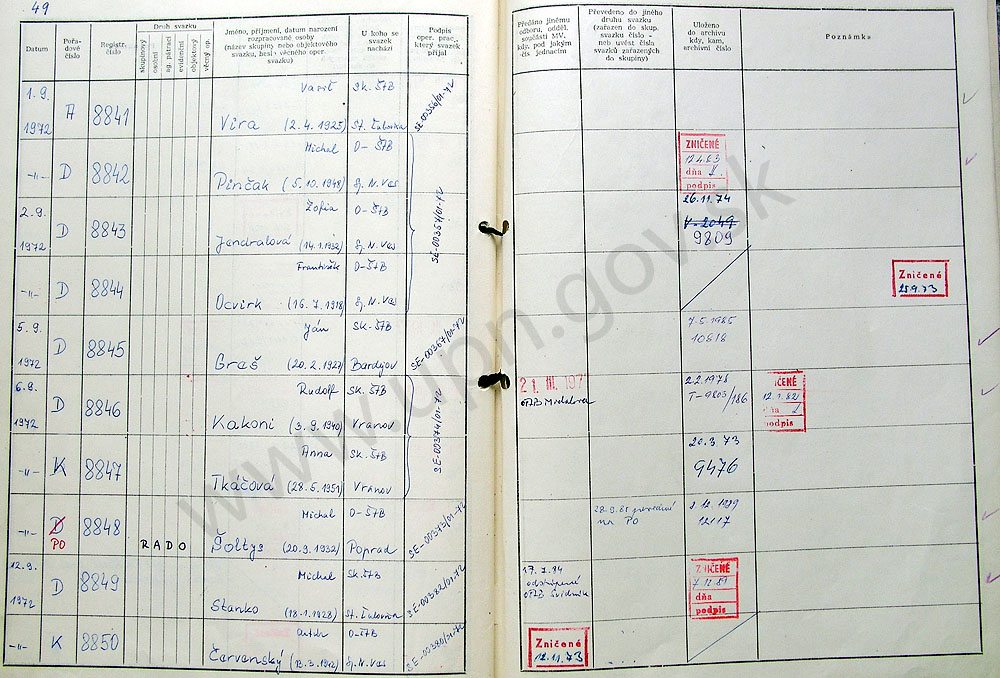 49
Datum
Pořadové číslo
Registr. číslo
Druh svazku
skupinový
osobní
ag. prací
evidenční
objektový
věcný op.
Jméno, příjmení, datum narození
rozpracované osoby
(název skupiny nebo objektového
svazku)
U koho se
svazek
nachází
Podpis
oper. prac.,
který svazek
přijal
Předáno jinému
odboru, odděl.
součásti MV,
kdy, pod jakým
čís. jednacím
Převedeno do jiného
druhu svazku
(zařazen do skup.
svazku číslo -
neb uvést čísla
svazků zařazených
do skupiny)
Uloženo
do archivu
kdy, kam,
archivní číslo
Poznámka
1.9.
1972 A 8841
Víra (2.4.1925)
Sk. ŠTB
St. Ľubovňa
SE-00356/01-72
-"- D 8842
Michal
Pinčák (5.10.1948)
O-ŠTB
Sp. N. Ves
ZNIČENÉ
dňa
podpis
2.9.
1972 D 8843
Žofia
Jendralová (14.1.1932)
O-ŠTB
Sp. N. Ves
SE-00357/01-72
26.11.74
V-2049
9809
-"- D 8844
František
Ocvirk (16.7.1918)
O-ŠTB
Sp. N. Ves
Zničené
25.9.73
5.9.
1972 D 8845
Ján
Greš (20.2.1927)
SK-ŠTB
Bardejov
SE-00367/01-72
7.5.1985
10818
6.9.
1972 D 8846
Rudolf
Kakoni (3.9.1940)
SK. ŠTB
Vranov
SE-00374/01-72
21. III. 197
OŠTB Michalovce
2.2.1978
T-9803/186
ZNIČENÉ
12.1.82
dňa
podpis
-"- K 8847
Anna
Tkáčová (28.5.1951)
SK. ŠTB
Vranov
20.3.73
9476
-"- D 8848
PO
RADO
Michal
Šoltys (20.9.1932)
O-ŠTB
Poprad
SE-00375/01-72
na PO
12117
12.9.
1972 D 8849
Michal
Stanko (18.1.1928)
SK. ŠTB
St. Ľubovňa
SE-00382/01-72
odstúpené
OŠTB Svidník
ZNIČENÉ
dňa
podpis
-"- K 8850
Červenský
O-ŠTB
Sp. N. Ves
SE-00380/01-72
Zničené
12.11.73
www.upn.gov.sk